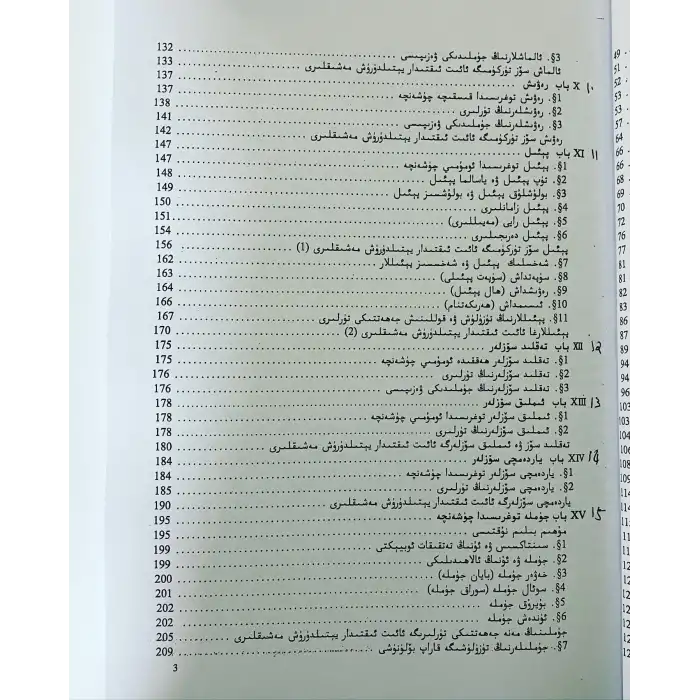 §3. ئالماشلارنىڭ جۈملىدىكى ۋەزىپىسى 132
ئالماش سۆز تۈركۈمىگە ئائىت ئىقتىدار يېتىلدۈرۈش مەشىقلىرى 133
10 X باب رەۋىش 137
§1. رەۋىش توغرىسىدا قىسقىچە چۈشەنچە 137
§2. رەۋىشلەرنىڭ تۈرلىرى 138
§3. رەۋىشلەرنىڭ جۈملىدىكى ۋەزىپىسى 141
رەۋىش سۆز تۈركۈمىگە ئائىت ئىقتىدار يېتىلدۈرۈش مەشىقلىرى 142
11 XI باب پېئىل 147
§1. پېئىل توغرىسىدا ئومۇمىي چۈشەنچە 147
§2. تۈپ پېئىل ۋە ياسالما پېئىل 148
§3. بولۇشلۇق پېئىل ۋە بولۇشسىز پېئىل 149
§4. پېئىل زامانلىرى 150
§5. پېئىل رايى (مەيىللىرى) 151
§6. پېئىل دەرىجىلىرى 154
پېئىل سۆز تۈركۈمىگە ئائىت ئىقتىدار يېتىلدۈرۈش مەشىقلىرى (1) 156
§7. شەخسلىك پېئىل ۋە شەخسسىز پېئىللار 162
§8. سۈپەتداش (سۈپەت پېئىلى) 163
§9. رەۋىشداش (ھال پېئىل) 164
§10. ئىسىمداش (ھەرىكەتنام) 166
§11. پېئىللارنىڭ تۈزۈلۈش ۋە قوللىنىش جەھەتتىكى تۈرلىرى 167
پېئىللارغا ئائىت ئىقتىدار يېتىلدۈرۈش مەشىقلىرى (2) 170
12 XII باب تەقلىد سۆزلەر 175
§1. تەقلىد سۆزلەر ھەققىدە ئومۇمىي چۈشەنچە 175
§2. تەقلىد سۆزلەرنىڭ تۈرلىرى 176
§3. تەقلىد سۆزلەرنىڭ جۈملىدىكى ۋەزىپىسى 176
13 XIII باب ئىملىق سۆزلەر 178
§1. ئىملىق سۆزلەر توغرىسىدا ئومۇمىي چۈشەنچە 178
§2. ئىملىق سۆزلەرنىڭ تۈرلىرى 178
تەقلىد سۆز ۋە ئىملىق سۆزلەرگە ئائىت ئىقتىدار يېتىلدۈرۈش مەشىقلىرى 180
14 XIV باب ياردەمچى سۆزلەر 184
§1. ياردەمچى سۆزلەر توغرىسىدا چۈشەنچە 184
§2. ياردەمچى سۆزلەرنىڭ تۈرلىرى 185
ياردەمچى سۆزلەرگە ئائىت ئىقتىدار يېتىلدۈرۈش مەشىقلىرى 190
15 XV باب جۈملە توغرىسىدا چۈشەنچە 195
مۇھىم بىلىم نۇقتىسى 195
§1. سىنتاكسىس ۋە ئۇنىڭ تەتقىقات ئوبيېكتى 199
§2. جۈملە ۋە ئۇنىڭ ئالاھىدىلىكى 199
§3. خەۋەر جۈملە (بايان جۈملە) 200
§4. سوئال جۈملە (سوراق جۈملە) 201
§5. بۇيرۇق جۈملە 202
§6. ئۈندەش جۈملە 202
جۈملىنىڭ مەنە جەھەتتىكى تۈرلىرىگە ئائىت ئىقتىدار يېتىلدۈرۈش مەشىقلىرى 205
§7. جۈملىلەرنىڭ تۈزۈلۈشىگە قاراپ بۆلۈنۈشى 209
3